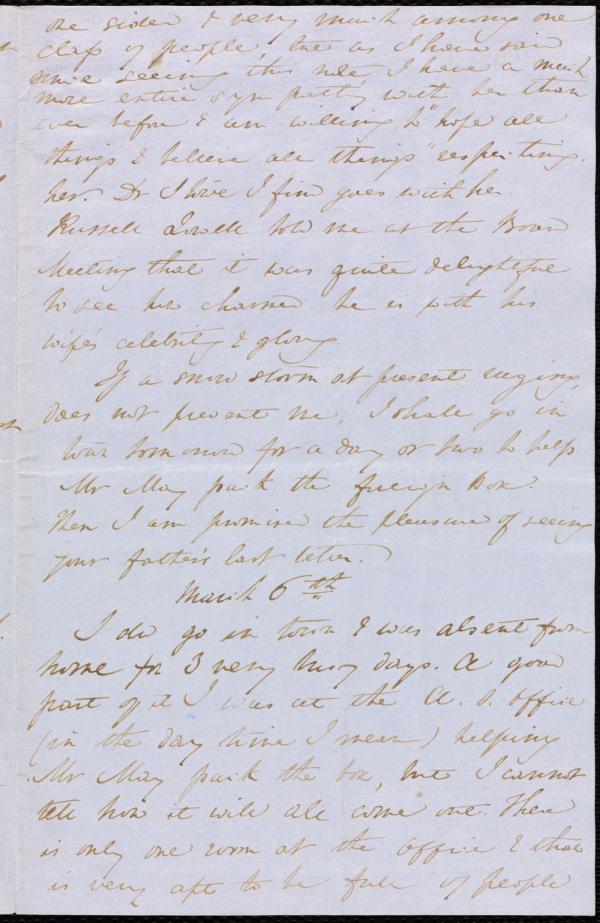 one sided & very much among one
class of people, but as I have said
since seeing this note, I have a much
more entire sympathy with her than
ever before & am willing to "hope all
things & believe all things" respecting
her. Dr Howe I find goes with her
Russell Lowell told me at the Board
Meeting that it was quite delightful
to see how charmed he is with his
wife's celebrity & glory.
If a snow storm at present raging,
does not prevent me, I shall go in
town tomorrow for a day or two to help
Mr May pack the foreign Box.
Then I am promised the pleasure of seeing
your father's last letter.
March 6th
I did go in town & was absent from
home for 3 very busy days. A good
part of it I was at the A. S. Office
(in the day time I mean) helping
Mr May pack the box, but I cannot
tell how it will all come out. There
is only one room at the Office & that
is very apt to be full of people